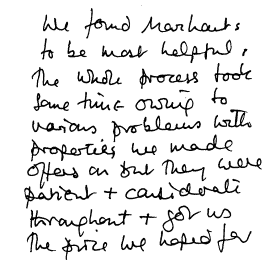 We found Marchants
to be most helpful.
The whole process took
some time owing to
various problems with
properties we made
offers on but they were
patient + considerate
throughout + got us
the price we hoped for